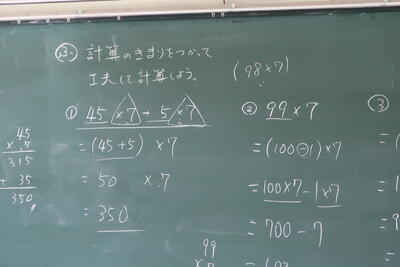 ふ 計算のきまりをつかって
工夫して計算しよう。
(98×7)
① 45×7+5×7
=(45+5)×7
=50 ×7
=350
45
×7
315
+35
350
② 99×7
=(100-1)×7
=100×7-1×7
=700-7
99
③
=(
=
=9
=